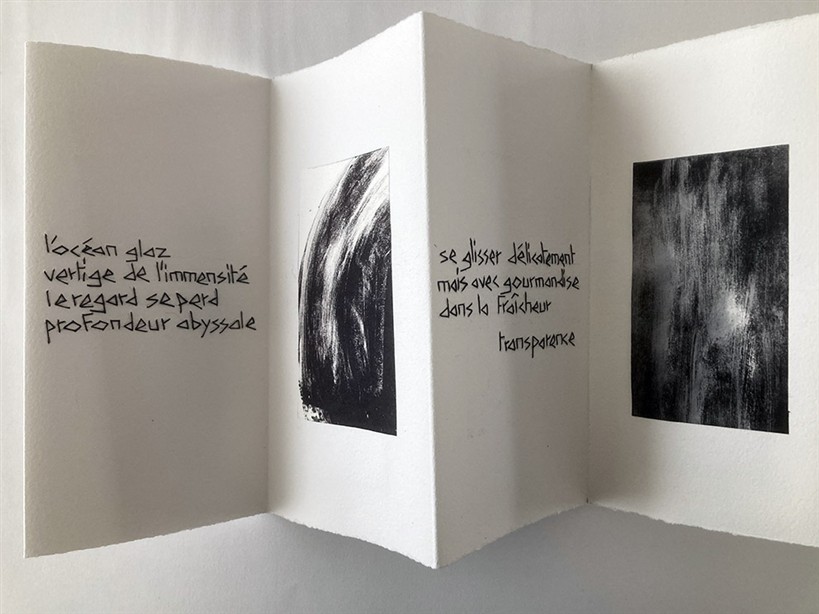 l'océan glaz
vertige de l'immensité
le regard se perd
profondeur abyssale
se glisser délicatement
mais avec gourmandise
dans la fraîcheur
transparence